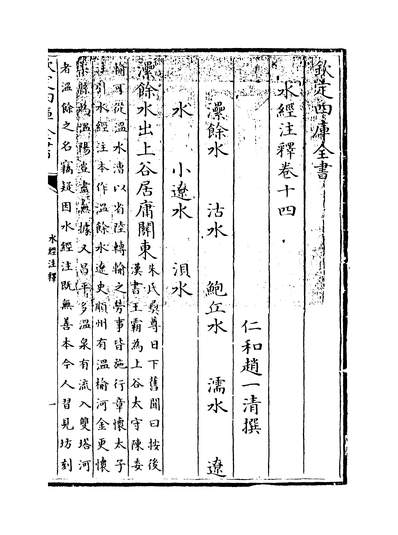 欽定四庫全書
水經注釋卷十四
仁和趙一清撰
灅餘水　沽水　鮑丘水　濡水　遼
水　小遼水　浿水
灅餘水出上谷居庸關東
朱氏彞尊日下舊聞曰按後
漢書王霸為上谷太守陳委
輸可從溫水漕以省陸轉輸之勞事皆施行章懷太子
注引水經注本作溫餘水遼史順州有溫榆河金更懷
柔縣為溫陽並盡無據又昌平多溫泉有流入雙塔河
者溫餘之名竊疑因水經注既無善本今人習見坊刻
水經注釋
一